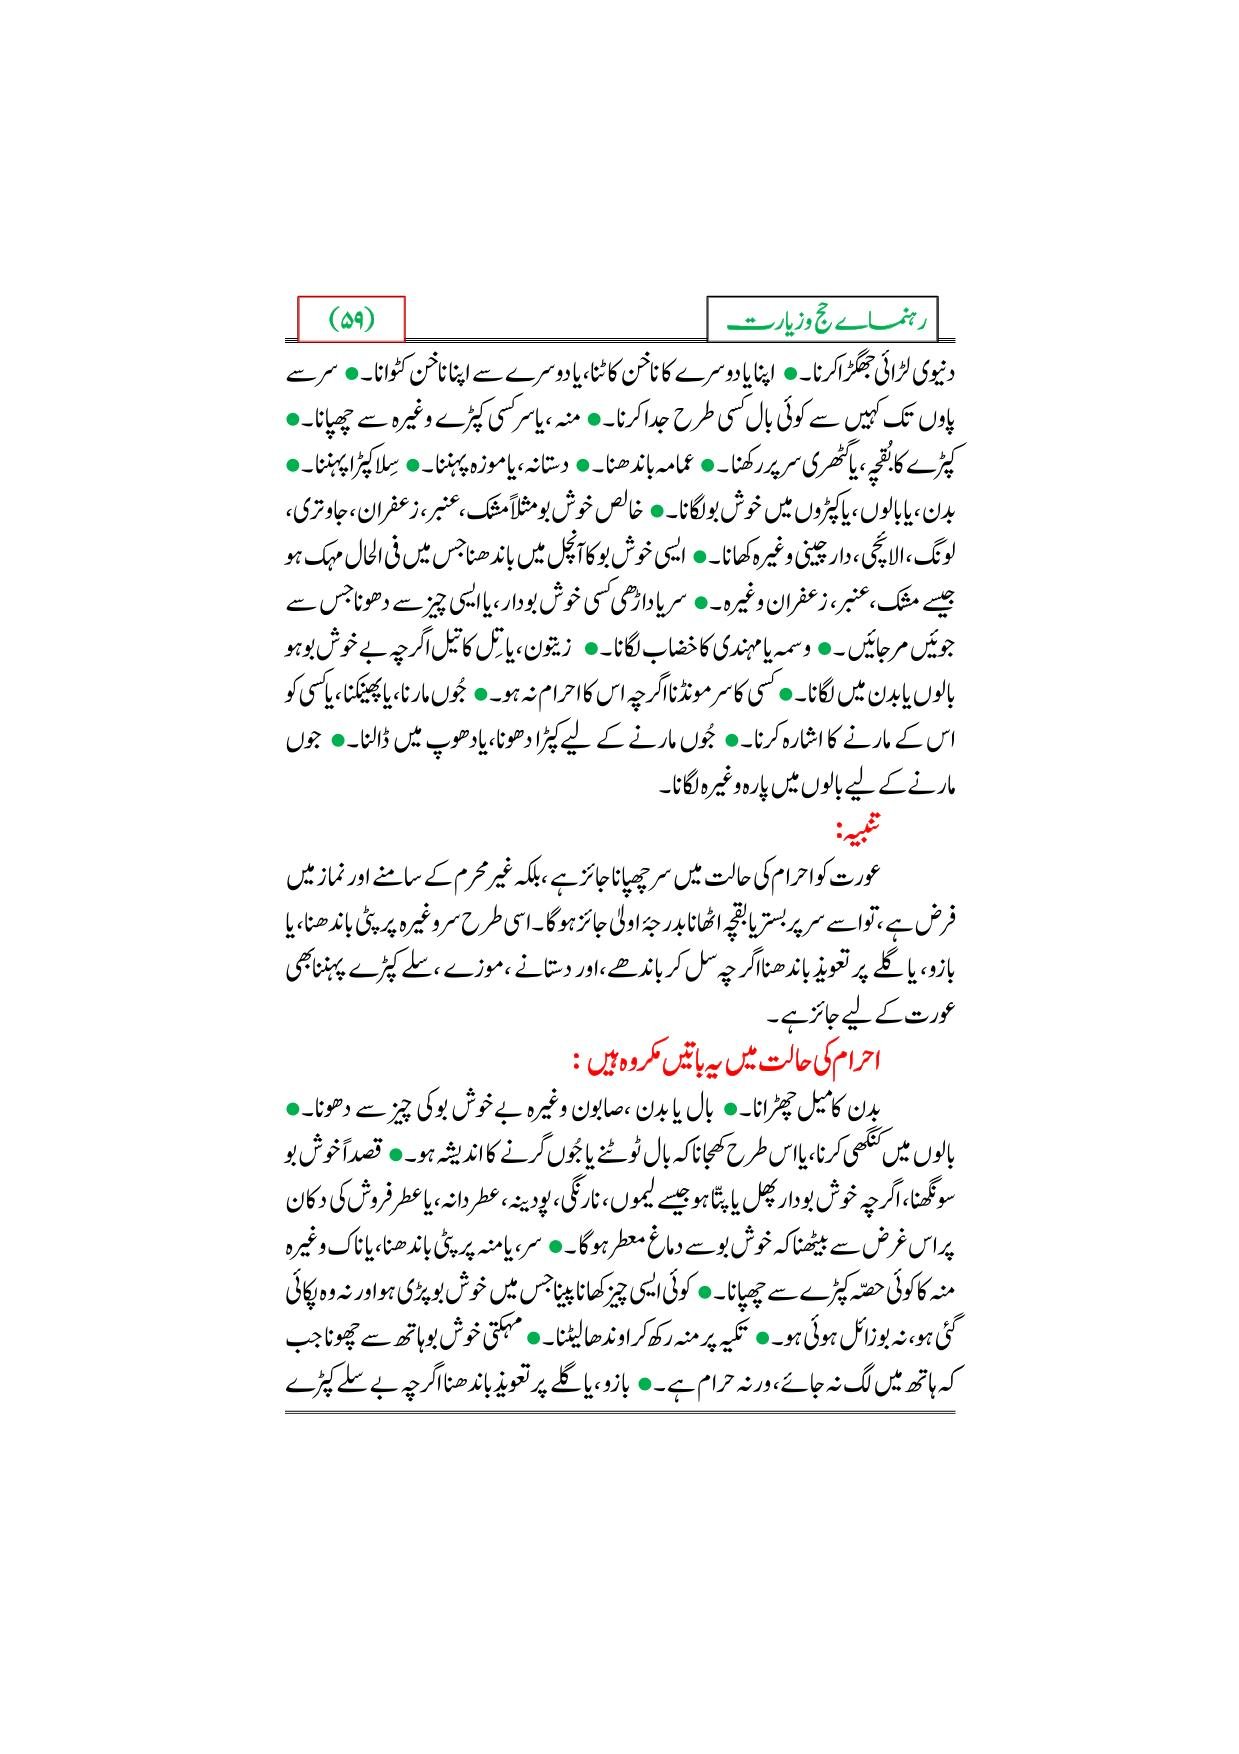 رہنماے حج وزیارت
(۵۹)
دنیوی لڑائی جھگڑا کرنا۔ ● اپنا یا دوسرے کا ناخن کاٹنا، یا دوسرے سے اپنا ناخن کٹوانا۔ ● سر سے
پاوں تک کہیں سے کوئی بال کسی طرح جدا کرنا۔ ● منہ، یا سر کسی کپڑے وغیرہ سے چھپانا۔ ●
کپڑے کا بُقچہ، یا گٹھری سر پر رکھنا۔ ● عمامہ باندھنا۔ ● دستانہ، یا موزہ پہننا۔ ● سِلا کپڑا پہننا۔ ●
بدن، یا بالوں، یا کپڑوں میں خوش بو لگانا۔ ● خالص خوش بو مثلاً مشک، عنبر، زعفران، جاوتری،
لونگ، الائچی، دار چینی وغیرہ کھانا۔ ● ایسی خوش بو کا آنچل میں باندھنا جس میں فی الحال مہک ہو
جیسے مشک، عنبر، زعفران وغیرہ۔ ● سر یا داڑھی کسی خوش بودار، یا ایسی چیز سے دھونا جس سے
جوئیں مرجائیں۔ ● وسمہ یا مہندی کا خضاب لگانا۔ ● زیتون، یا تِل کا تیل اگرچہ بے خوش بو ہو
بالوں یا بدن میں لگانا۔ ● کسی کا سر مونڈنا اگرچہ اس کا احرام نہ ہو۔ ● جُوں مارنا، یا پھینکنا، یا کسی کو
اس کے مارنے کا اشارہ کرنا۔ ● جُوں مارنے کے لیے کپڑا دھونا، یا دھوپ میں ڈالنا۔ ● جوں
مارنے کے لیے بالوں میں پارہ وغیرہ لگانا۔
تنبیہ:
عورت کو احرام کی حالت میں سر چھپانا جائز ہے، بلکہ غیر محرم کے سامنے اور نماز میں
فرض ہے، تو اسے سر پر بستر یا بقچہ اٹھانا بدرجۂ اولیٰ جائز ہوگا۔ اسی طرح سر وغیرہ پر پٹی باندھنا، یا
بازو، یا گلے پر تعویذ باندھنا اگرچہ سل کر باندھے، اور دستانے، موزے، سلے کپڑے پہننا بھی
عورت کے لیے جائز ہے۔
احرام کی حالت میں یہ باتیں مکروہ ہیں:
بدن کا میل چھڑانا۔ ● بال یا بدن، صابون وغیرہ بے خوش بو کی چیز سے دھونا۔ ●
بالوں میں کنگھی کرنا، یا اس طرح کھجانا کہ بال ٹوٹنے یا جُوں گرنے کا اندیشہ ہو۔ ● قصداً خوش بو
سونگھنا، اگرچہ خوش بودار پھل یا پتّا ہو جیسے لیموں، نارنگی، پودینہ، عطردانہ، یا عطر فروش کی دکان
پر اس غرض سے بیٹھنا کہ خوش بو سے دماغ معطر ہوگا۔ ● سر، یا منہ پر پٹی باندھنا، یا ناک وغیرہ
منہ کا کوئی حصّہ کپڑے سے چھپانا۔ ● کوئی ایسی چیز کھانا پینا جس میں خوش بو پڑی ہو اور نہ وہ پکائی
گئی ہو، نہ بو زائل ہوئی ہو۔ ● تکیہ پر منہ رکھ کر اوندھا لیٹنا۔ ● مہکتی خوش بو ہاتھ سے چھونا جب
کہ ہاتھ میں لگ نہ جائے، ورنہ حرام ہے۔ ● بازو، یا گلے پر تعویذ باندھنا اگرچہ بے سلے کپڑے